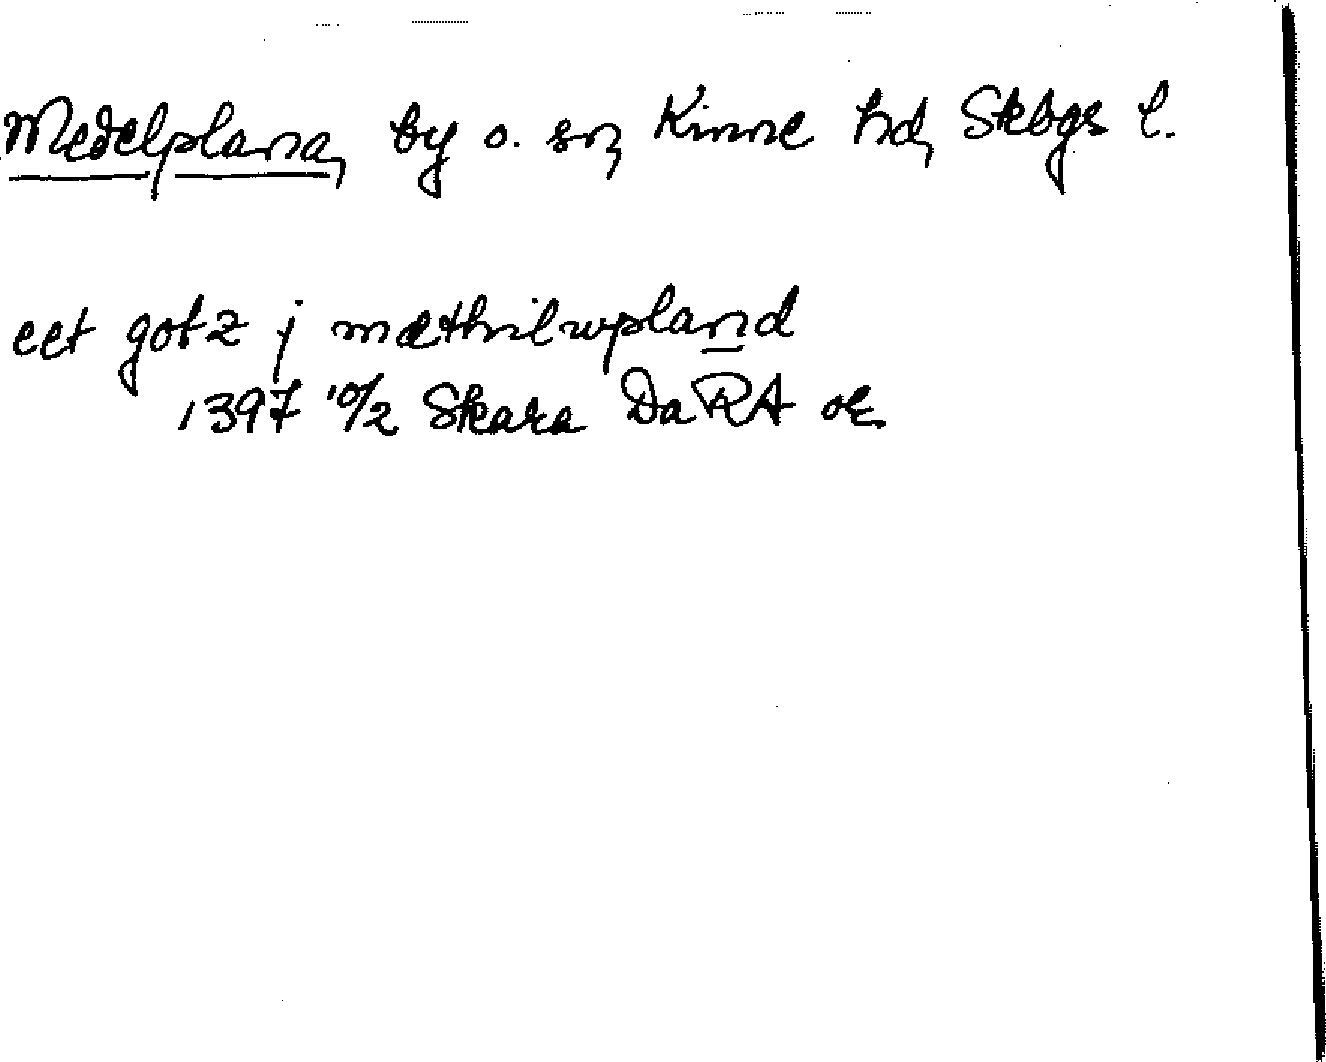 Medelplana, by o. sn, Kinne hd, Skbgs l.
eet gotz j mæthilwpland
1397 10/2 Skara DaRA or.